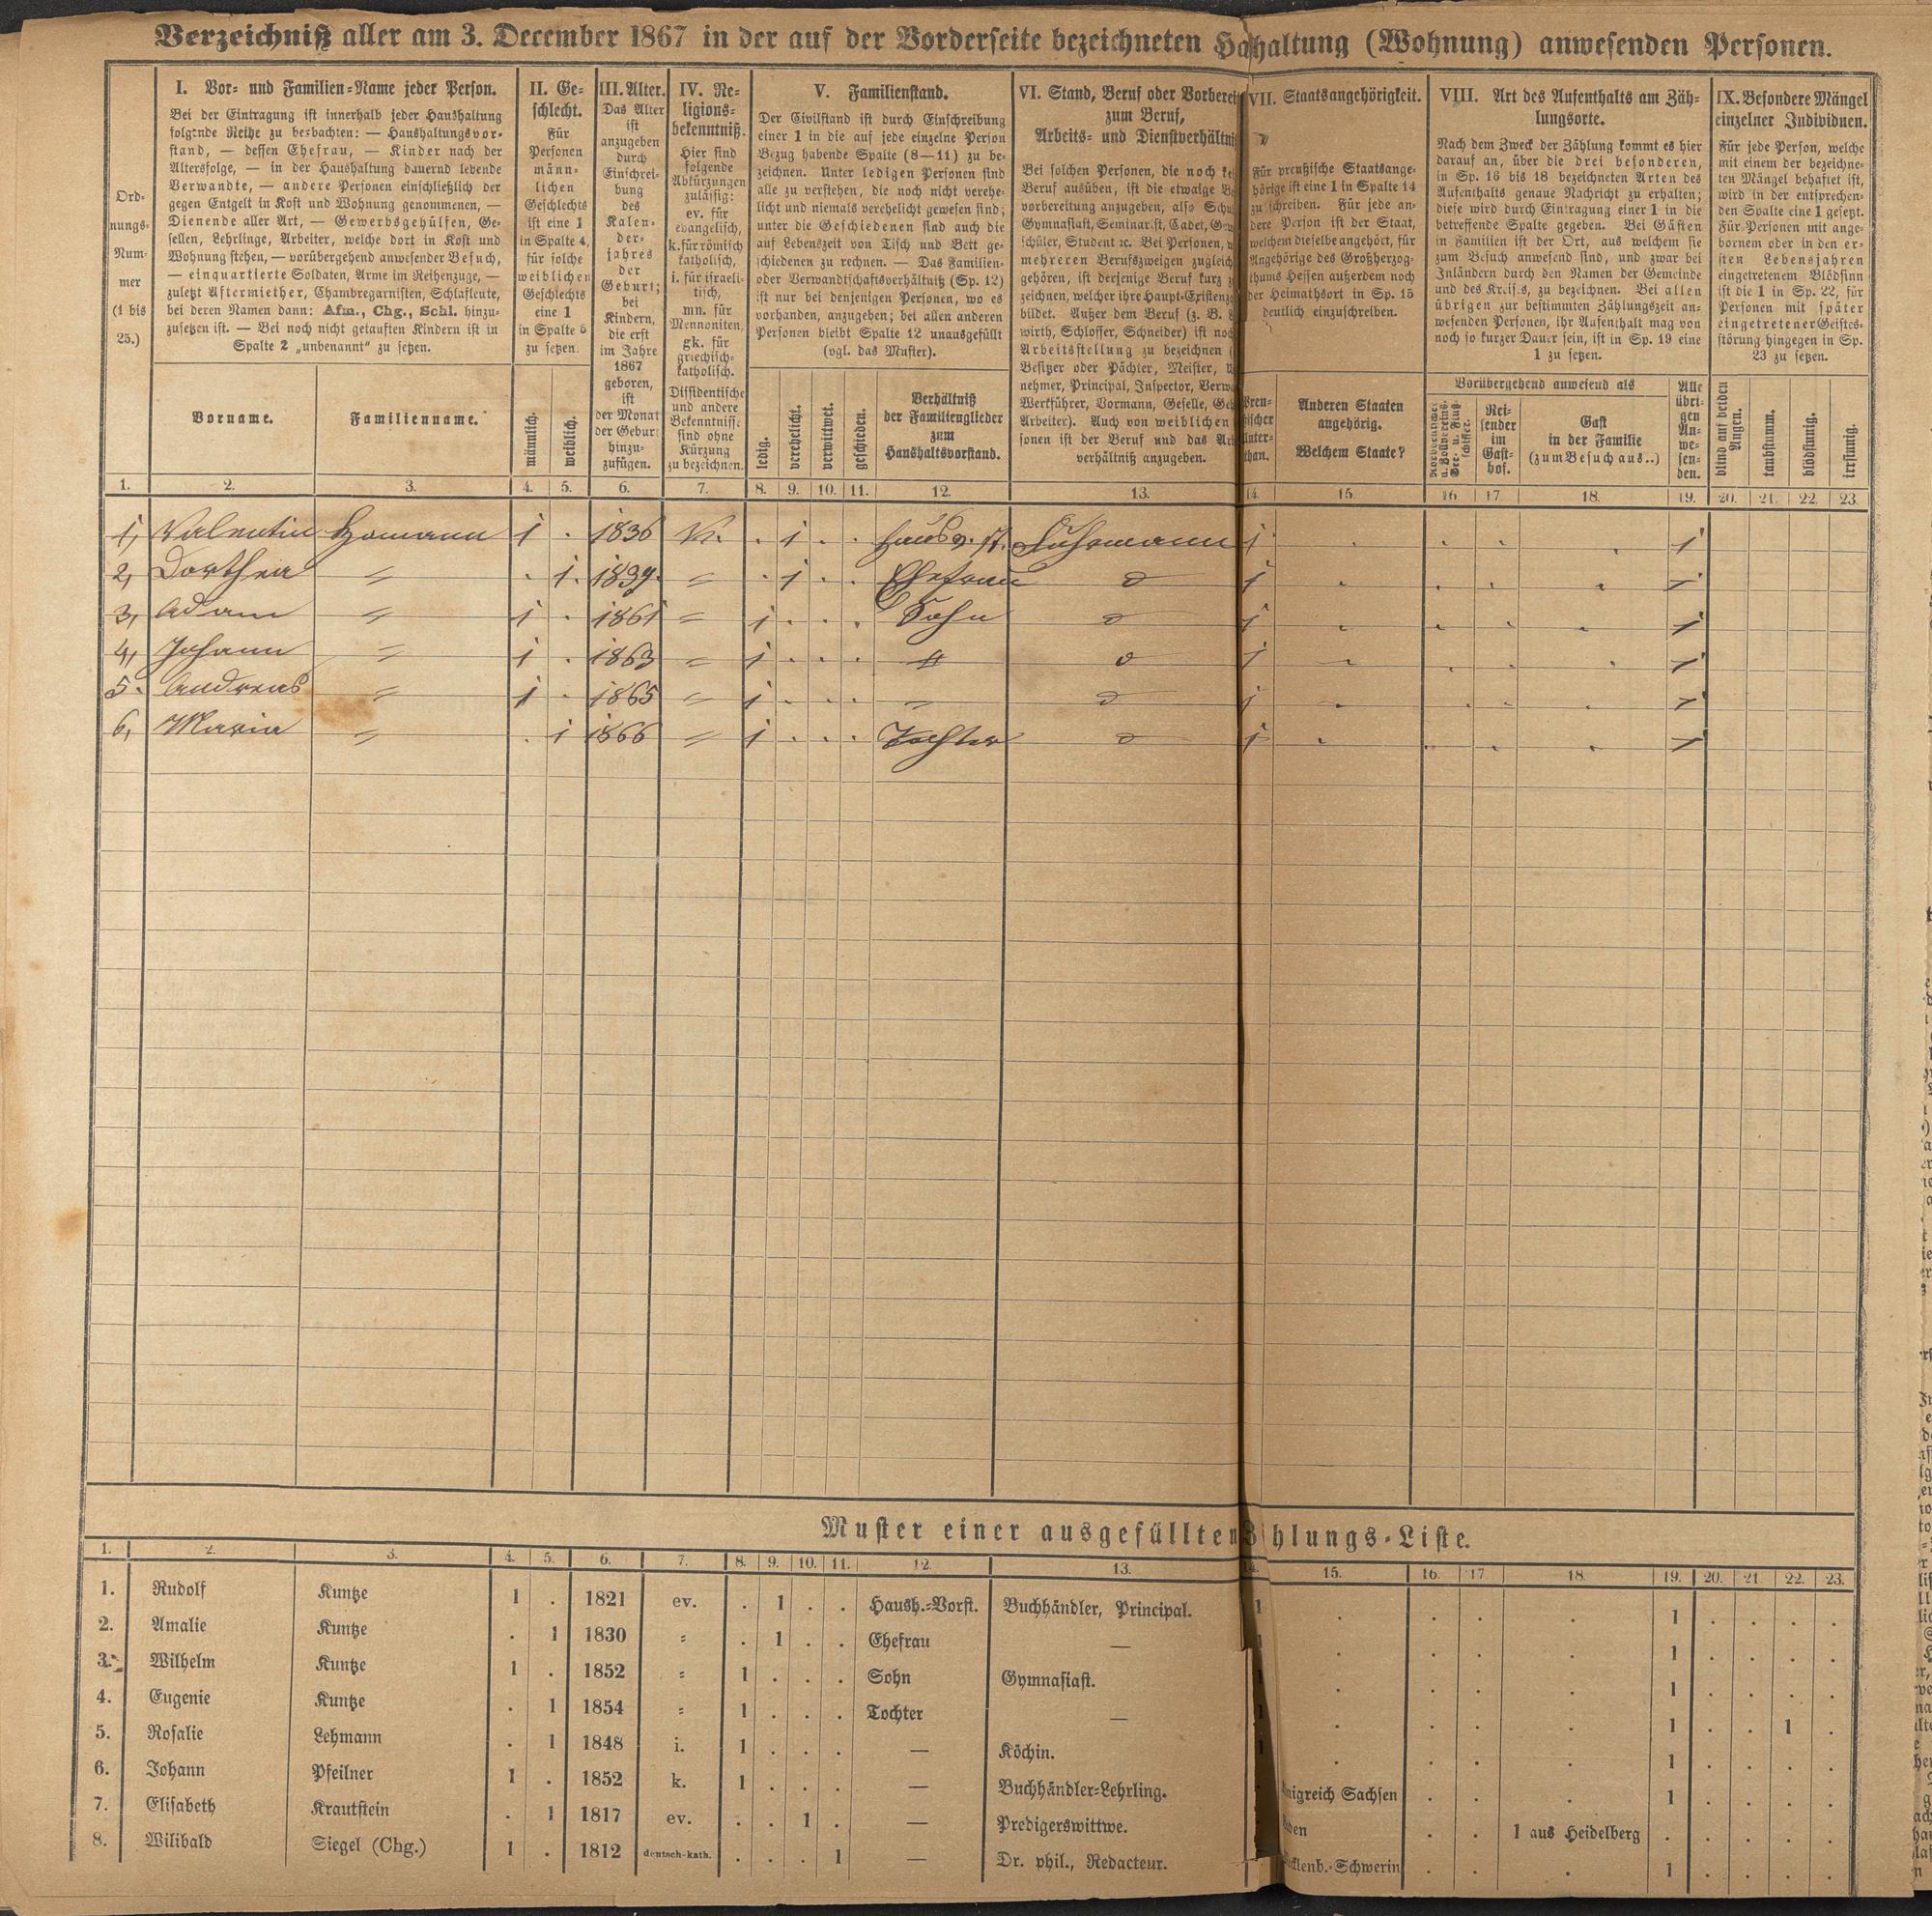 Verzeichniß aller am 3. December 1867 in der auf der Vorderseite bezeichneten Haushaltung (Wohnung) anwesenden Personen.
Ord-
nungs-
Num-
mer
(1 bis
25.)
I. Vor- und Familien-Name jeder Person.
Bei der Eintragung ist innerhalb jeder Haushaltung
folgende Reihe zu beobachten: — Haushaltungsvor-
stand, — dessen Ehefrau, — Kinder nach der
Altersfolge, — in der Haushaltung dauernd lebende
Verwandte, — andere Personen einschließlich der
gegen Entgelt in Kost und Wohnung genommenen, —
Dienende aller Art, — Gewerbsgehülfen, Ge-
sellen, Lehrlinge, Arbeiter, welche dort in Kost und
Wohnung stehen, — vorübergehend anwesender Besuch,
— einquartierte Soldaten, Arme im Reihenzuge, —
zuletzt Aftermiether, Chambregarnisten, Schlafleute,
bei deren Namen dann: Afm., Chg., Schl. hinzu-
zusetzen ist. — Bei noch nicht getauften Kindern ist in
Spalte 2 „unbenannt" zu setzen.
Vorname.
Familienname.
II. Ge-
schlecht.
Für
Personen
männ-
lichen
Geschlechts
ist eine 1
in Spalte 4,
für solche
weiblichen
Geschlechts
eine 1
in Spalte 5
zu setzen.
männlich.
weiblich.
III. Alter.
Das Alter
ist
anzugeben
durch
Einschrei-
bung
des
Kalen-
der-
jahres
der
Geburt;
bei
Kindern,
die erst
im Jahre
1867
geboren,
ist
der Monat
der Geburt
hinzu-
zufügen.
IV. Re-
ligions-
bekenntniß.
Hier sind
folgende
Abkürzungen
zulässig:
ev. für
evangelisch,
k. für römisch
katholisch,
i. für israeli-
tisch,
mn. für
Mennoniten,
gk. für
griechisch-
katholisch.
Dissidentische
und andere
Bekenntnisse
sind ohne
Kürzung
zu bezeichnen.
V. Familienstand.
Der Civilstand ist durch Einschreibung
einer 1 in die auf jede einzelne Person
Bezug habende Spalte (8—11) zu be-
zeichnen. Unter ledigen Personen sind
alle zu verstehen, die noch nicht verehe-
licht und niemals verehelicht gewesen sind;
unter die Geschiedenen sind auch die
auf Lebenszeit von Tisch und Bett ge-
schiedenen zu rechnen. — Das Familien-
oder Verwandtschaftsverhältniß (Sp. 12)
ist nur bei denjenigen Personen, wo es
vorhanden, anzugeben; bei allen anderen
Personen bleibt Spalte 12 unausgefüllt
(vgl. das Muster).
ledig.
verehelicht.
verwittwet.
geschieden.
Verhältniß
der Familienglieder
zum
Haushaltsvorstand.
VI. Stand, Beruf oder Vorberei
zum Beruf,
Arbeits- und Dienstverhältni
Bei solchen Personen, die noch kei
Beruf ausüben, ist die etwaige Be
vorbereitung anzugeben, also Schu
Gymnasiast, Seminarist, Cadet, Gew
schüler, Student ꝛc. Bei Personen, w
mehreren Berufszweigen zugleich
gehören, ist derjenige Beruf kurz z
zeichnen, welcher ihre Haupt-Existenz
bildet. Außer dem Beruf (z. B.
wirth, Schlosser, Schneider) ist noch
Arbeitsstellung zu bezeichnen (
Besitzer oder Pächter, Meister, U
nehmer, Principal, Inspector, Verw
Werkführer, Vormann, Geselle, Geh
Arbeiter). Auch von weiblichen
sonen ist der Beruf und das Arb
verhältniß anzugeben.
VII. Staatsangehörigkeit.
Für preußische Staatsange-
hörige ist eine 1 in Spalte 14
zu schreiben. Für jede an-
dere Person ist der Staat,
welchem dieselbe angehört, für
Angehörige des Großherzog-
thums Hessen außerdem noch
der Heimathsort in Sp. 15
deutlich einzuschreiben.
Preu-
ßischer
Unter-
than.
Anderen Staaten
angehörig.
Welchem Staate?
VIII. Art des Aufenthalts am Zäh-
lungsorte.
Nach dem Zweck der Zählung kommt es hier
darauf an, über die drei besonderen,
in Sp. 16 bis 18 bezeichneten Arten des
Aufenthalts genaue Nachricht zu erhalten;
diese wird durch Eintragung einer 1 in die
betreffende Spalte gegeben. Bei Gästen
in Familien ist der Ort, aus welchem sie
zum Besuch anwesend sind, und zwar bei
Inländern durch den Namen der Gemeinde
und des Kreises, zu bezeichnen. Bei allen
übrigen zur bestimmten Zählungszeit an-
wesenden Personen, ihr Aufenthalt mag von
noch so kurzer Dauer sein, ist in Sp. 19 eine
1 zu setzen.
Vorübergehend anwesend als
Rei-
sender
im
Gast-
hof.
Gast
in der Familie
(zum Besuch aus..)
Alle
übri-
gen
An-
we-
sen-
den.
IX. Besondere Mängel
einzelner Individuen.
Für jede Person, welche
mit einem der bezeichne-
ten Mängel behaftet ist,
wird in der entsprechen-
den Spalte eine 1 gesetzt.
Für Personen mit ange-
bornem oder in den er-
sten Lebensjahren
eingetretenem Blödsinn
ist die 1 in Sp. 22, für
Personen mit später
eingetretener Geistes-
störung hingegen in Sp.
23 zu setzen.
blind auf beiden
Augen.
taubstumm.
blödsinnig.
irrsinnig.
1. 2. 3. 4. 5. 6. 7. 8. 9. 10. 11. 12. 13. 14. 15. 16 17 18. 19. 20. 21. 22. 23.
1, Valentin Homann 1 . 1836 K. . 1 . . Hausv. st. Fuhrmann 1 . . . . 1
2, Dorthea " . 1. 1839. " . 1 . . Ehefrau 1 . . . . 1
3, Adam " 1 . 1861 " 1 . . . Sohn 1 . . . . 1
4, Johann " 1 . 1863 " 1 . . . " 1 . . . . 1
5. Andreas " 1 . 1865 " 1 . . . " 1 . . . . 1
6, Maria " . 1 1866 " 1 . . . Tochter 1 . . . . 1
Muster einer ausgefüllten Zählungs-Liste.
1. 2. 3. 4. 5. 6. 7. 8. 9. 10. 11. 12. 13. 14. 15. 16. 17 18. 19. 20. 21 22. 23.
1. Rudolf Kuntze 1 . 1821 ev. . 1 . . Haush.-Vorst. Buchhändler, Principal. 1 . . . . 1 . . . .
2. Amalie Kuntze . 1 1830 " . 1 . . Ehefrau — 1 . . . . 1 . . . .
3. Wilhelm Kuntze 1 . 1852 " 1 . . . Sohn Gymnasiast. 1 . . . . 1 . . . .
4. Eugenie Kuntze . 1 1854 " 1 . . . Tochter — 1 . . . . 1 . . 1 .
5. Rosalie Lehmann . 1 1848 i. 1 . . . — Köchin. 1 . . . . 1 . . . .
6. Johann Pfeilner 1 . 1852 k. 1 . . . — Buchhändler-Lehrling. nigreich Sachsen . . . 1 . . . .
7. Elisabeth Krautstein . 1 1817 ev. . . 1 . — Predigerswittwe. den . . 1 aus Heidelberg . . . . .
8. Wilibald Siegel (Chg.) 1 . 1812 deutsch-kath. . . . 1 — Dr. phil., Redacteur. cklenb.-Schwerin . . . 1 . . . .